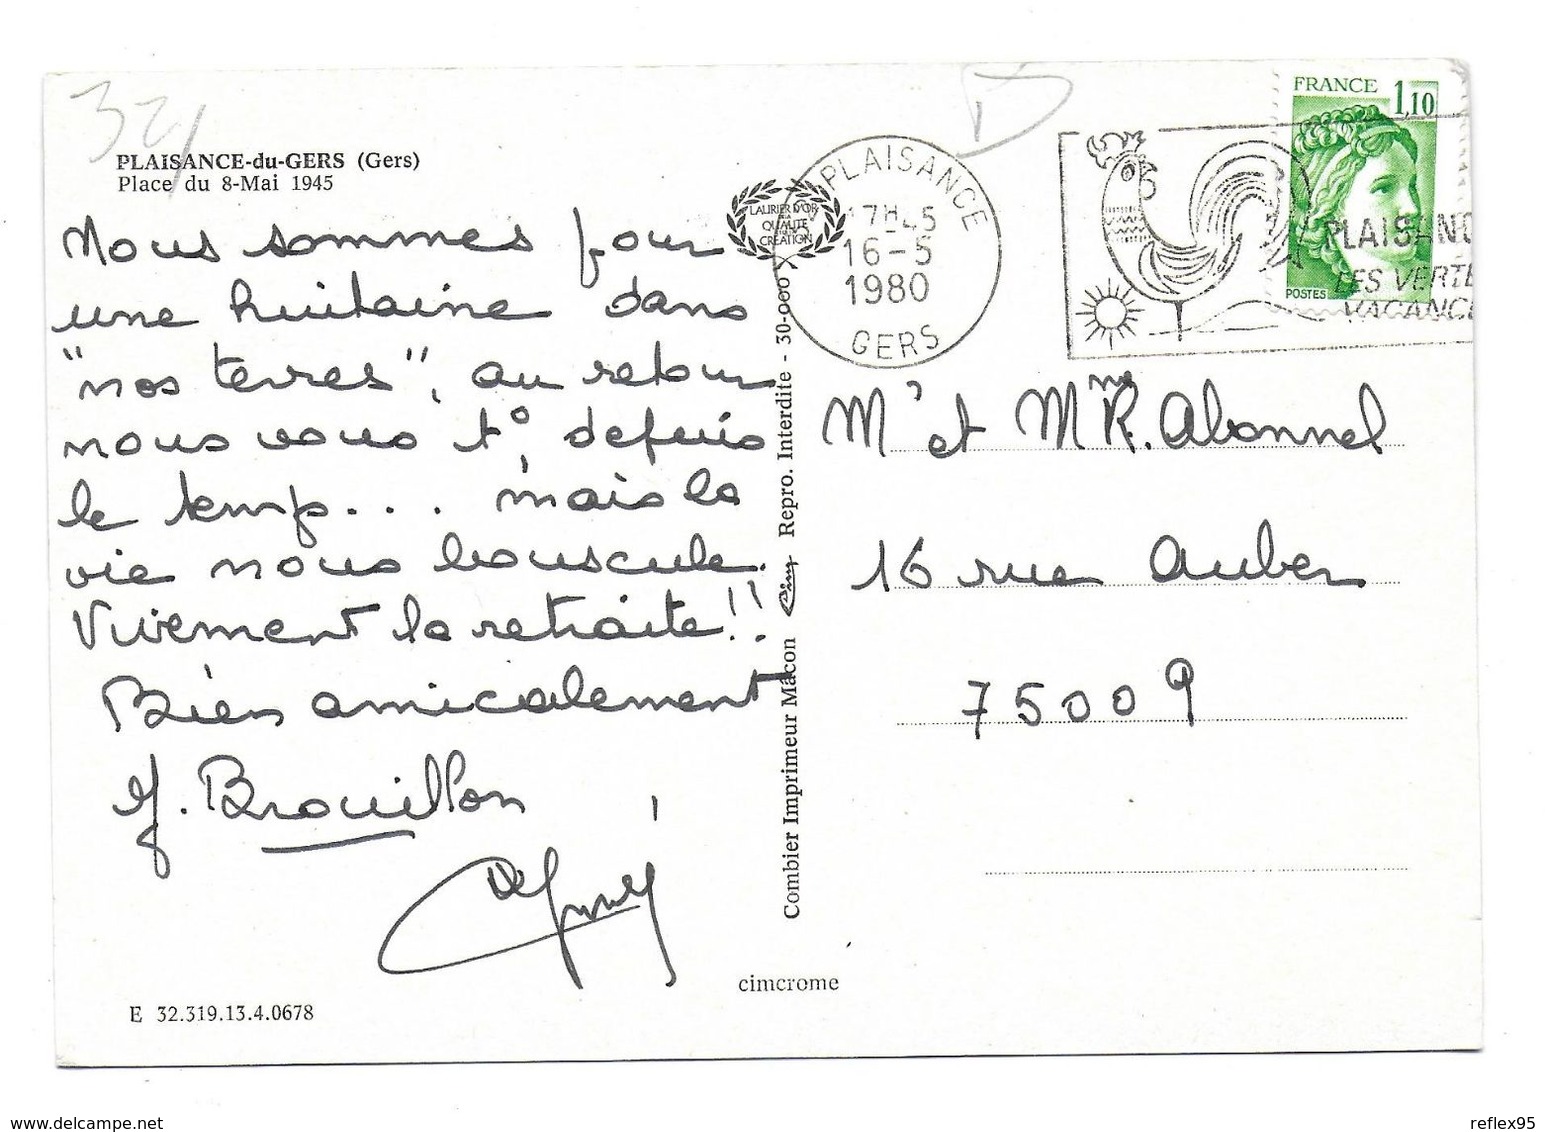 32
PLAISANCE-du-GERS (Gers)
Place du 8-Mai 1945
Nous sommes pour
une huitaine dans
"nos terres", au retour
nous vous t°, depuis
le temps... mais la
vie nous bouscule.
Vivement la retraite!!
Bien amicalement
J. Brouillon
E 32.319.13.4.0678
LAURIER D'OR
DE LA
QUALITÉ
CRÉATION
Combier Imprimeur Mâcon Cim Repro. Interdite - 30-000
cimcrome
PLAISANCE
17H45
16-5
1980
GERS
PLAISANC
LES VERTE
VACANCE
FRANCE 1,10
POSTES
Mr et Mme R. Abonnel
16 rue Auber
75009
reflex95